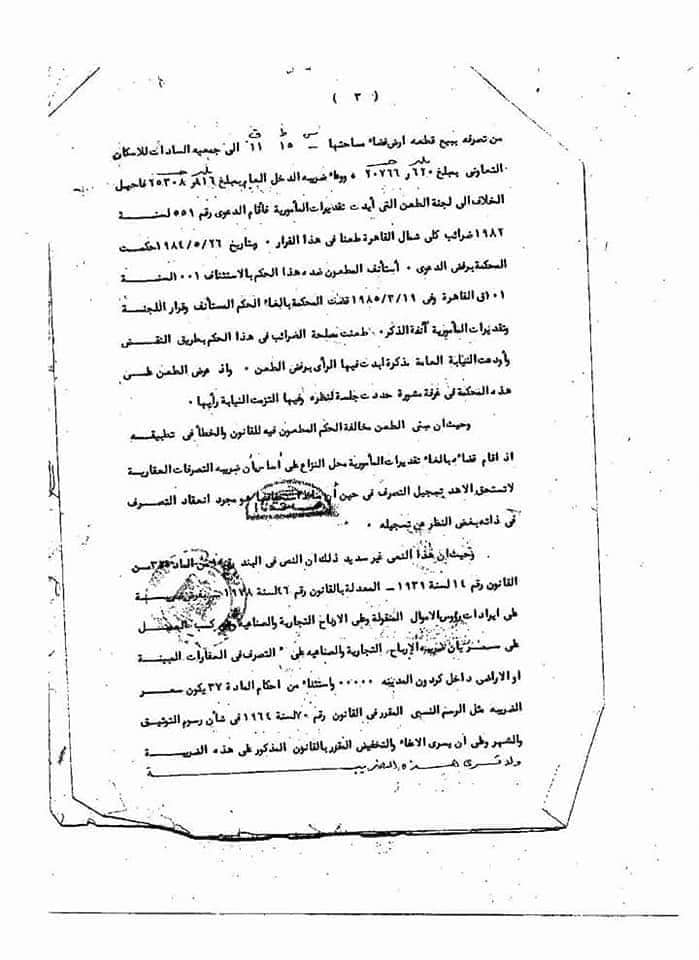 ( ٣ )
س ط ف
من تصرفه ببيع قطعه أرض فضاء مساحتها ــ ١٥ ١١ الى جمعيه السادات للاسكان
التعاونى بمبلغ ٦٢٠ر٢٠٧٦٦ ووعاء ضريبه الدخل العام بمبلغ ٨١٦ر٢٥٣٠٨ فاحيل
الخلاف الى لجنة الطعن التى أيدت تقديرات المأمورية فأقام الدعوى رقم ٥٥١ لسنة
١٩٨٢ ضرائب كلى شمال القاهرة طعنا فى هذا القرار ٠ وبتاريخ ١٩٨٤/٥/٢٦ حكمت
المحكمة برفض الدعوى ٠ أستأنف المطعون ضده هذا الحكم بالاستئناف ١٠٠١ لسنة
١٠١ق القاهرة وفى ١٩٨٥/٣/١٩ قضت المحكمة بالغاء الحكم المستأنف وقرار اللجنة
وتقديرات المأمورية آنفة الذكر ٠ طعنت مصلحة الضرائب فى هذا الحكم بطريق النقض
وأودعت النيابة العامة مذكرة ابدت فيها الرأى برفض الطعن ٠ واذ عرض الطعن على
هذه المحكمة فى غرفة مشورة حددت جلسة لنظره وفيها التزمت النيابة رأيها ٠
وحيث ان مبنى الطعن مخالفة الحكم المطعون فيه للقانون والخطأ فى تطبيقه
اذ اقام قضاءه بالغاء تقديرات المأمورية محل النزاع على أساس أن ضريبه التصرفات العقارية
لا تستحق الا بعد تسجيل التصرف فى حين أن مناط استحقاقها هو مجرد انعقاد التصرف
فى ذاته بغض النظر عن تسجيله ٠
وحيث ان هذا النعى غير سديد ذلك ان النص فى البند من الماده ٣٢ من
القانون رقم ١٤ لسنة ١٩٣٩ ــ المعدلة بالقانون رقم ٤٦ لسنة ١٩٧٨
على ايرادات رؤوس الاموال المنقولة وعلى الارباح التجارية والصناعيه وعلى كسب العمل
على سريان ضريبه الأرباح التجارية والصناعيه على " التصرف فى العقارات المبينة
او الاراضى داخل كردون المدينه ٠٠٠٠٠ واستثناء من احكام المادة ٣٧ يكون سعر
الضريبه مثل الرسم النسبى المقرر فى القانون رقم ٧٠ لسنة ١٩٦٤ فى شأن رسوم التوثيق
والشهر وعلى أن يسرى الاعفاء والتخفيض المقرر بالقانون المذكور على هذه الضريبة
ولا تسرى هذه الضريبة